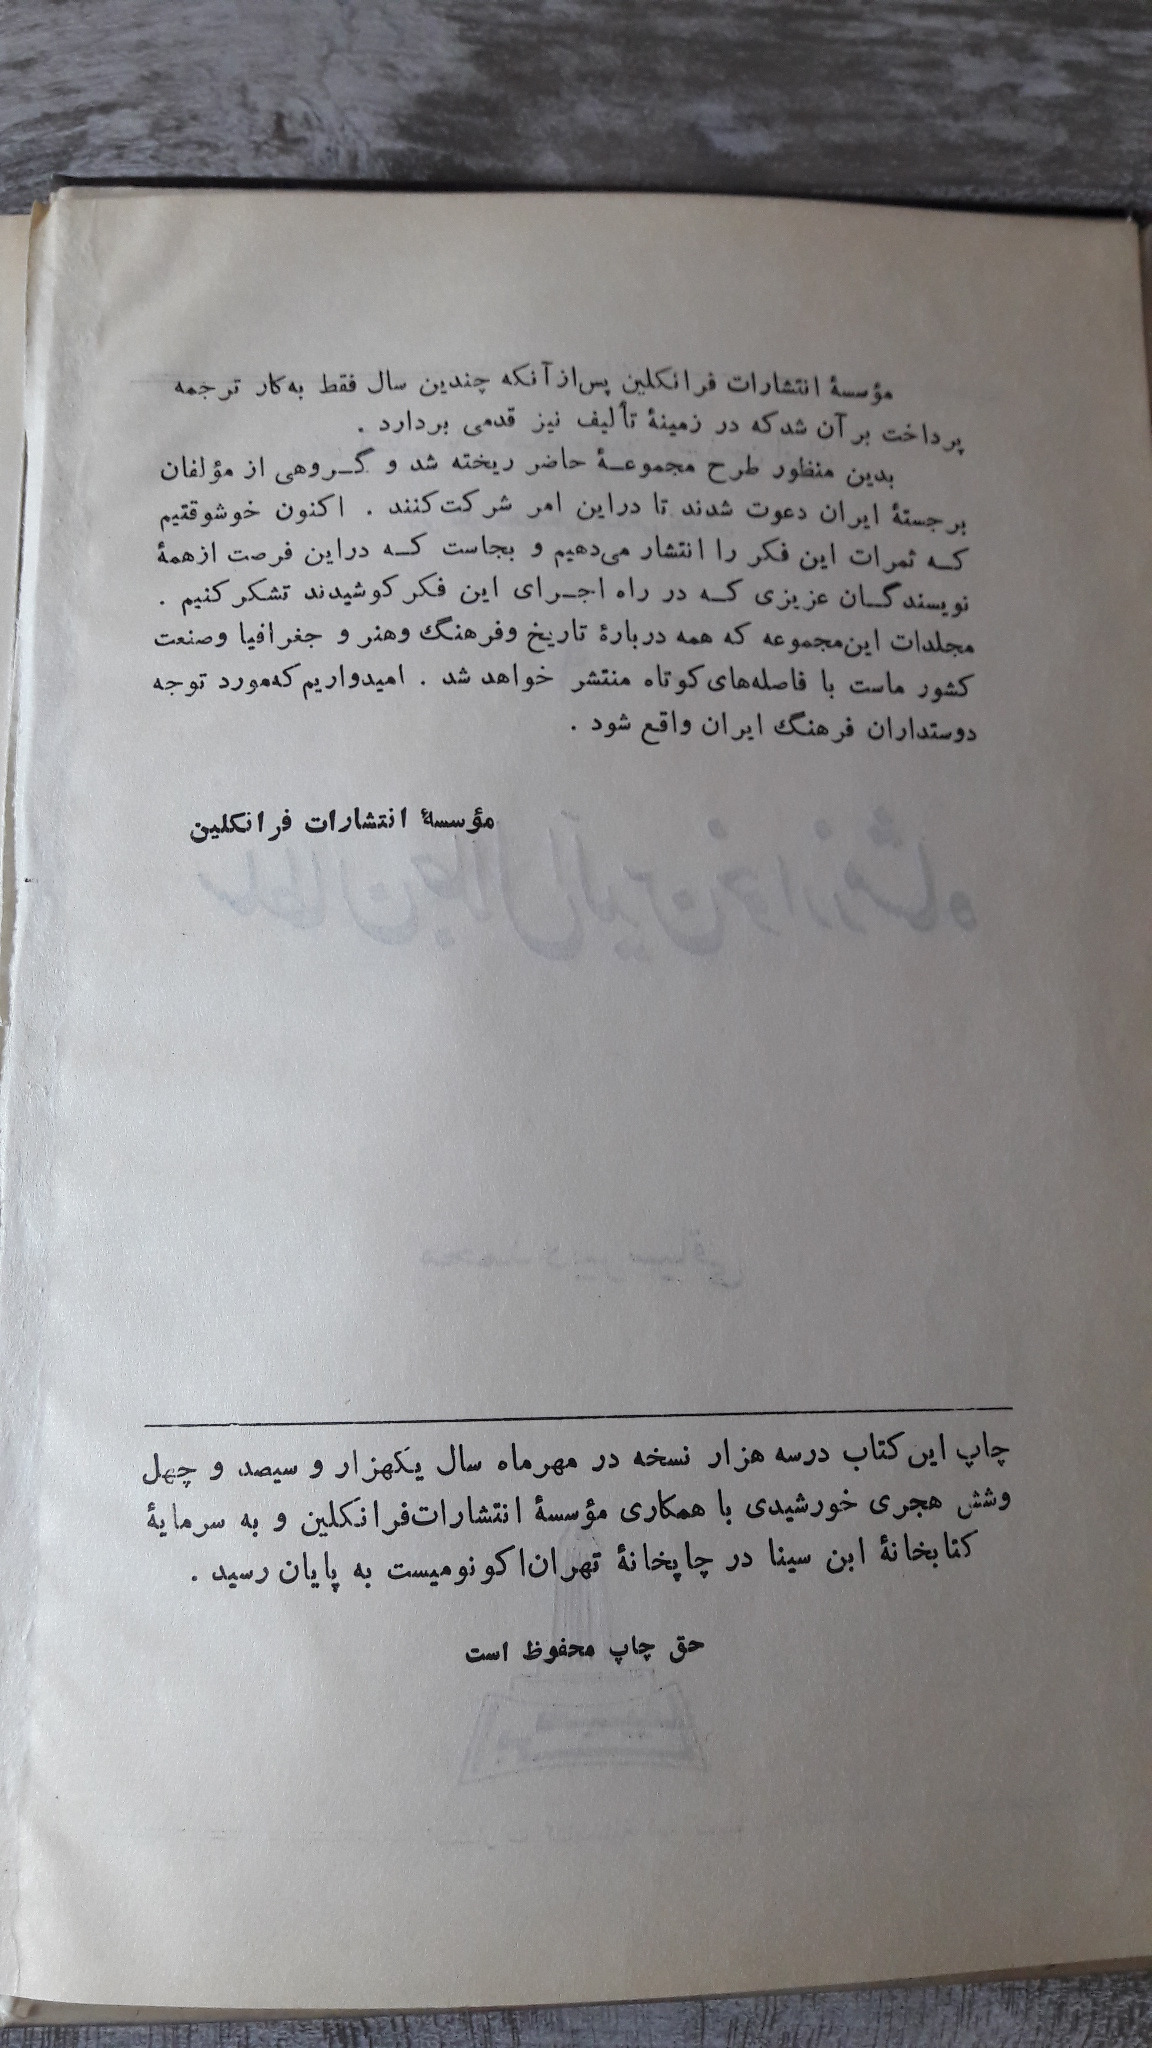 مؤسسهٔ انتشارات فرانکلین پس‌از آنکه چندین سال فقط به‌کار ترجمه
پرداخت بر آن شد که در زمینهٔ تألیف نیز قدمی بردارد .
بدین منظور طرح مجموعهٔ حاضر ریخته شد و گروهی از مؤلفان
برجستهٔ ایران دعوت شدند تا دراین امر شرکت کنند . اکنون خوشوقتیم
که ثمرات این فکر را انتشار می‌دهیم و بجاست که دراین فرصت ازهمهٔ
نویسندگان عزیزی که در راه اجرای این فکر کوشیدند تشکر کنیم .
مجلدات این‌مجموعه که همه دربارهٔ تاریخ وفرهنگ وهنر و جغرافیا وصنعت
کشور ماست با فاصله‌های کوتاه منتشر خواهد شد . امیدواریم که‌مورد توجه
دوستداران فرهنگ ایران واقع شود .
مؤسسهٔ انتشارات فرانکلین
سلطان جلال‌الدین خوارزمشاه
محمد دبیرسیاقی
چاپ این کتاب درسه هزار نسخه در مهرماه سال یکهزار و سیصد و چهل
وشش هجری خورشیدی با همکاری مؤسسهٔ انتشارات‌فرانکلین و به سرمایهٔ
کتابخانهٔ ابن سینا در چاپخانهٔ تهران‌اکونومیست به پایان رسید .
حق چاپ محفوظ است